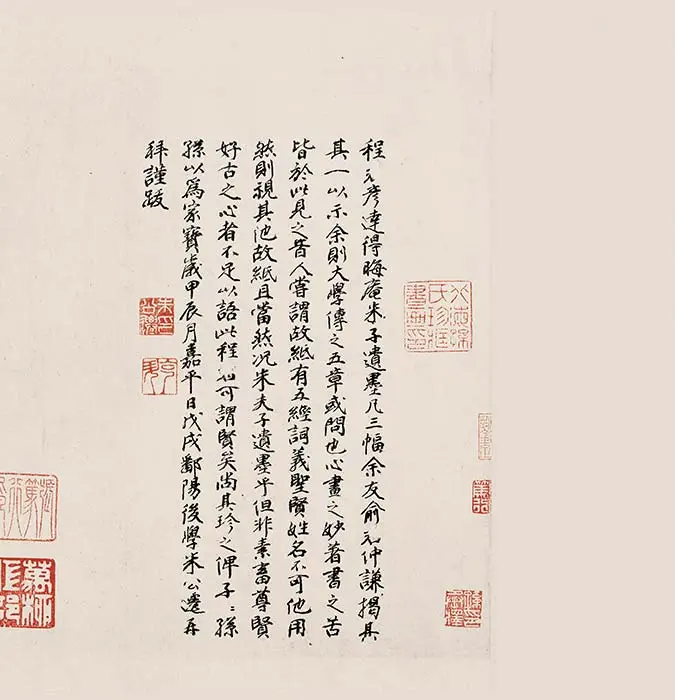 程元彦达得晦庵朱子遺墨凡三幅余友俞元仲謙揭其
其一以示余則大學傳之五章或問也心畫之妙著書之苦
皆於此見之昔人嘗謂故紙有五經詞義聖賢姓名不可他用
然則視其他故紙且當然況朱夫子遺墨乎但非素畜尊賢
好古之心者不足以語此程可謂賢矣尚其珍之俾子〻孫
孫以為家寶歲甲辰月嘉平日戊戌鄱陽後學朱公遷再
拜謹跋